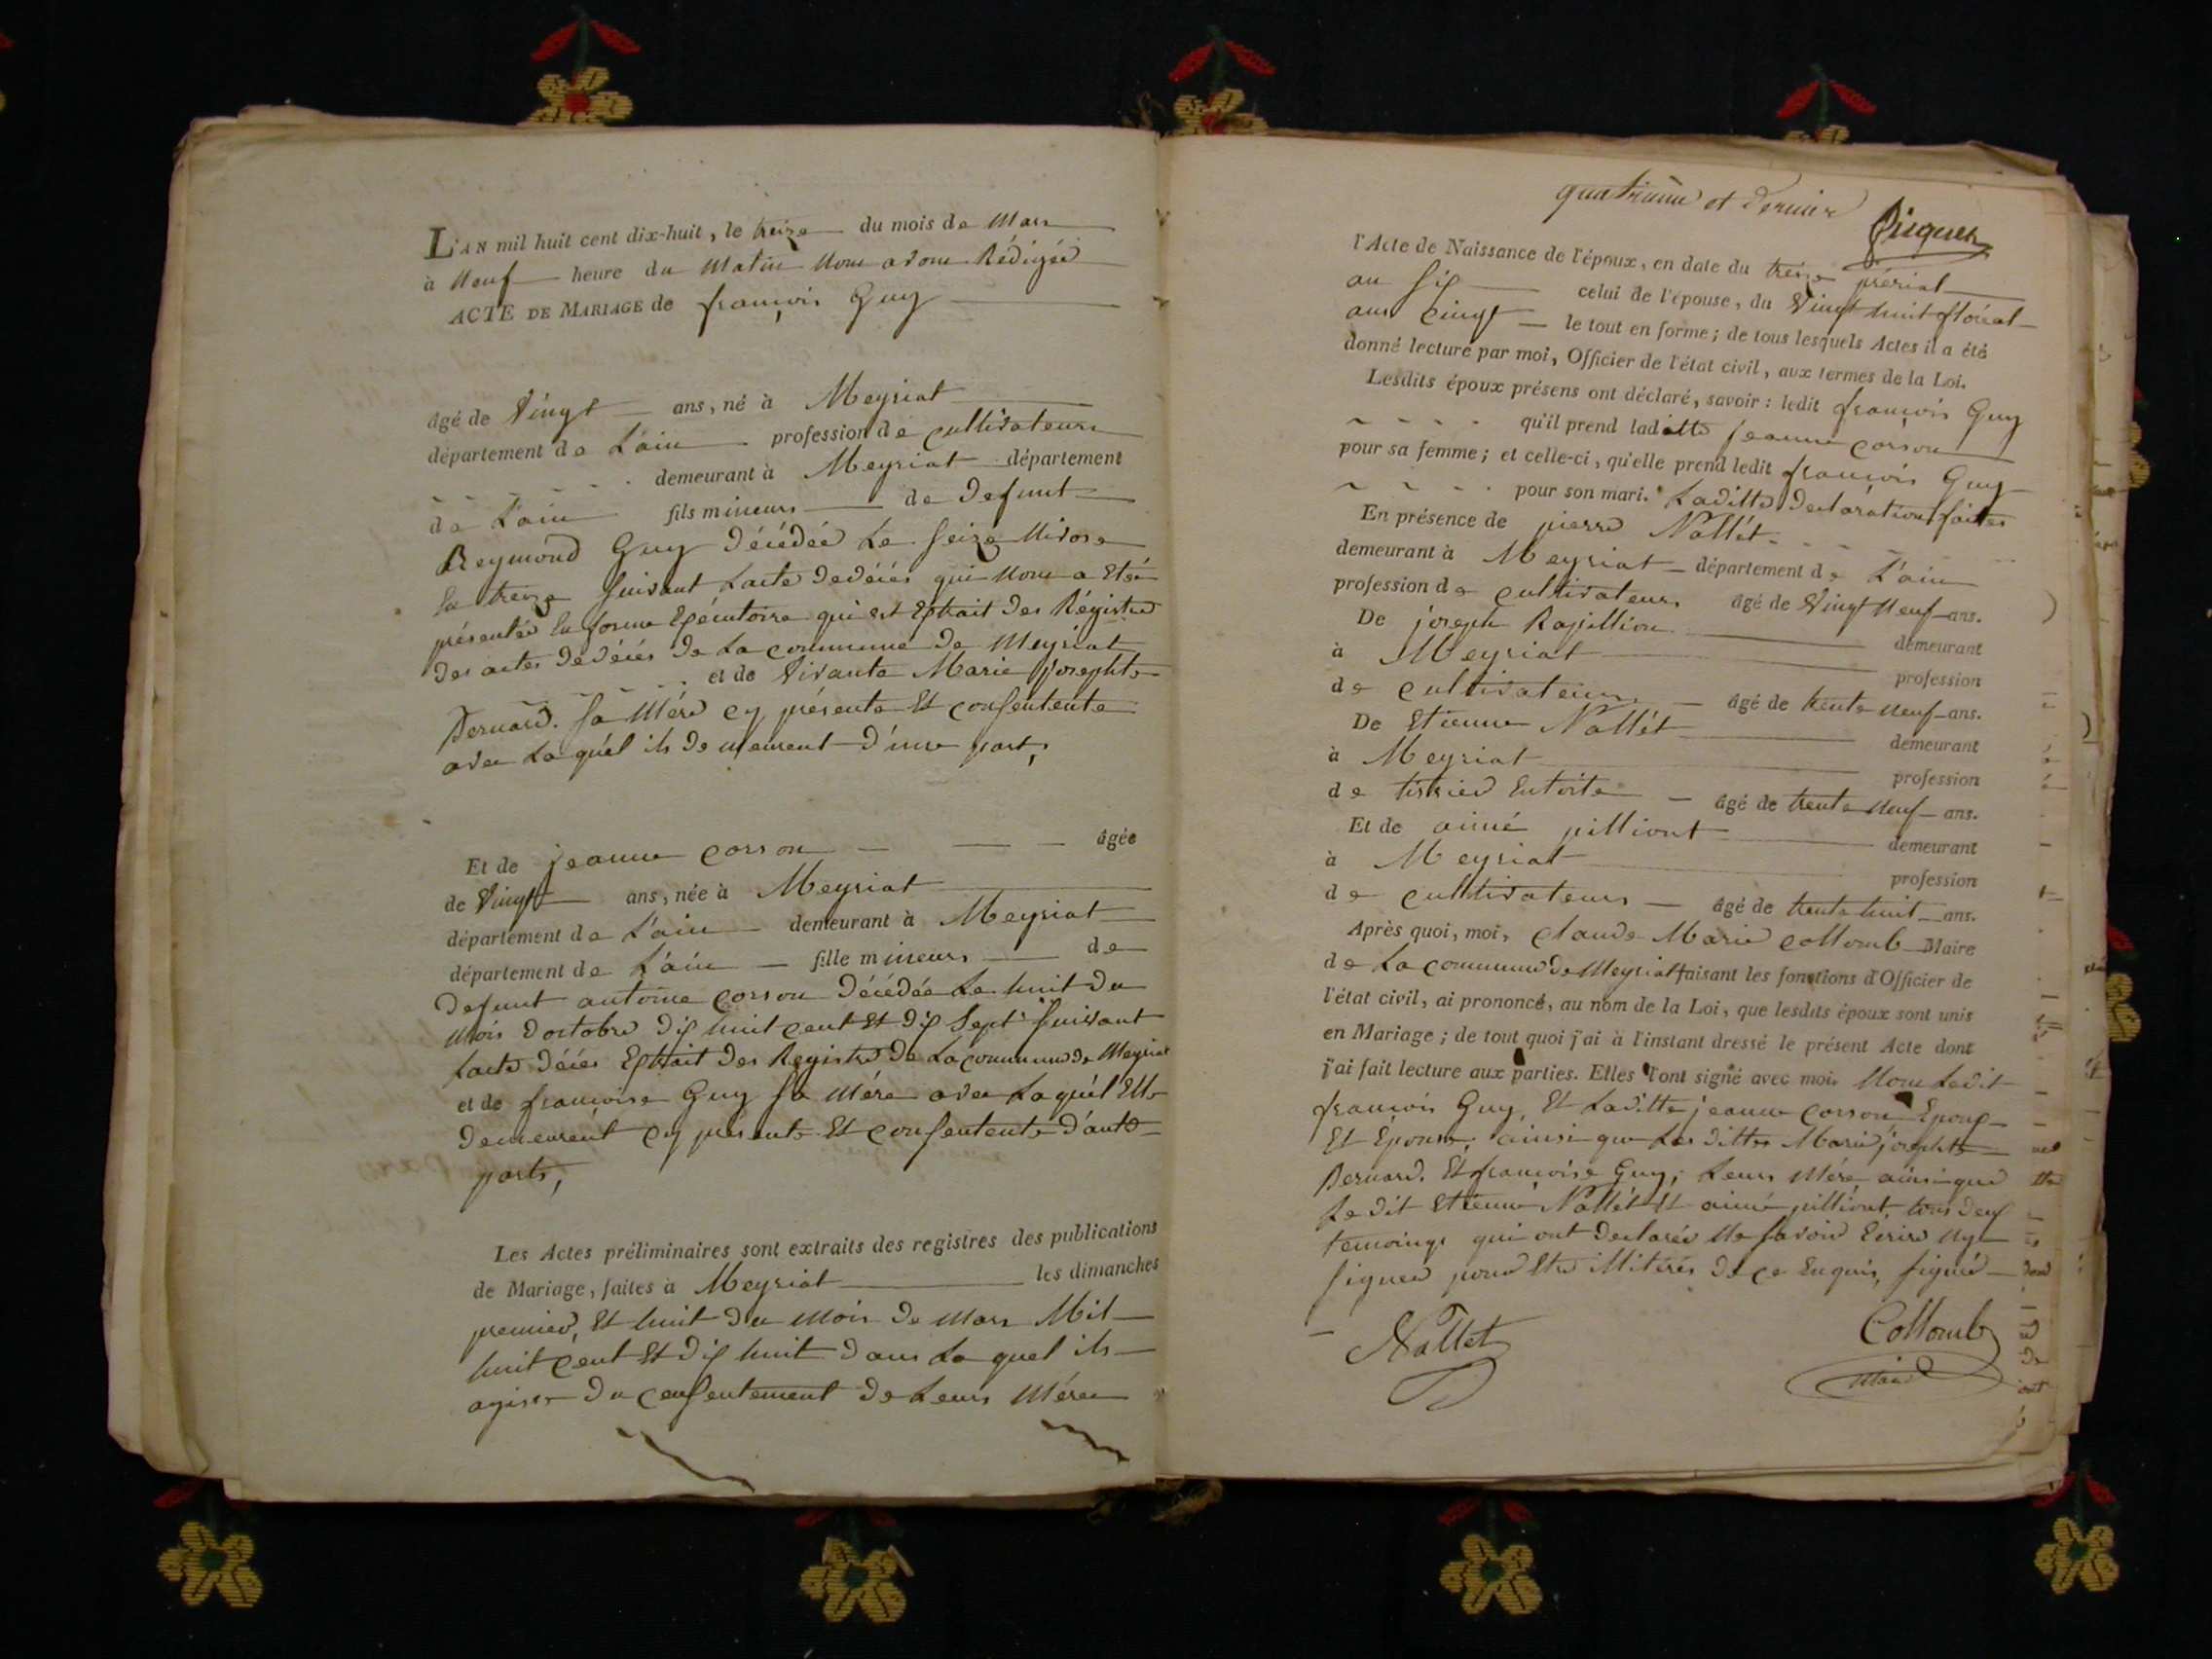 L'AN mil huit cent dix-huit, le treize du mois de Mars
à Neuf heure du Matin Nous avons Rédigéé
ACTE DE MARIAGE de françois Guy
âgé de Vingt ans, né à Meyriat
département de L'ain profession de cultivateurs
demeurant à Meyriat département
de L'ain fils mineurs de Defunt
Reymond Guy Décédéé Le seize Nivose
La treize suivant Lacte dedécés qui Nous a Etéé
présentée En forme Exécutoire qui est Extrait des Régistre
des actes dedécés de La commune de Meyriat
et de Vivante Marie josephte
Bernard. sa Mére cy présente Et consentente
avec Laquél ils demeurent D'une part,
Et de jeanne corson âgée
de Vingt ans, née à Meyriat
département de L'ain demeurant à Meyriat
département de L'ain fille mineurs de
Defunt antoine corson Décédée Le huit du
Mois Doctobre Dix huit cent Et Dix Sept suivant
Lacte Décés Extrait des Registre de La commune de Meyriat
et de françoise Guy sa Mére avec Laquél Elle
Demeurént cy présente Et consentente D'autre
parts,
Les Actes préliminaires sont extraits des registres des publications
de Mariage, faites à Meyriat les dimanches
premier, Et huit du Mois de Mars Mil
huit cent Et Dix huit Dans La quel ils
agisse Du consentement de Leurs Mérer
quatriéme et Dernier
l'Acte de Naissance de l'époux, en date du tréize prérial
an six celui de l'épouse, du Vingt huit floréal
ans cinqt le tout en forme; de tous lesquels Actes il a été
donné lecture par moi, Officier de l'état civil, aux termes de la Loi.
Lesdits époux présens ont déclaré, savoir: ledit françois Guy
qu'il prend laditte jeanne corson
pour sa femme; et celle-ci, qu'elle prend ledit françois Guy
pour son mari. Laditte Declaration faites
En présence de pierre Nallét
demeurant à Meyriat département de L'ain
profession de cultivateurs âgé de Vingt Neuf ans.
De joseph Rapillion demeurant
à Meyriat profession
de cultivateurs âgé de trente Neuf ans.
De Etienne Nallét demeurant
à Meyriat profession
de tissier Entoite âgé de trente Neuf ans.
Et de aimé pilliont demeurant
à Meyriat profession
de cultivateurs âgé de trente huit ans.
Après quoi, moi, claude Marie collomb Maire
de La commune de Meyriat faisant les fonctions d'Officier de
l'état civil, ai prononcé, au nom de la Loi, que lesdits époux sont unis
en Mariage; de tout quoi j'ai à l'instant dressé le présent Acte dont
j'ai fait lecture aux parties. Elles l'ont signé avec moi. Nous Ledit
françois Guy, Et Laditte jeanne corson Epoux
Et Epouse, ainsi que Les dittes Marie josephte
Bernard. Et françoise Guy, Leurs Mére ainsi que
Le dit Etienne Nallét Et aimé pilliont, tous deux
temoings qui ont Declarés Ne savoir Ecrire Ny
signer pour Etre Illitérés de ce Enquis, signé
Nallet
Collomb
Maire